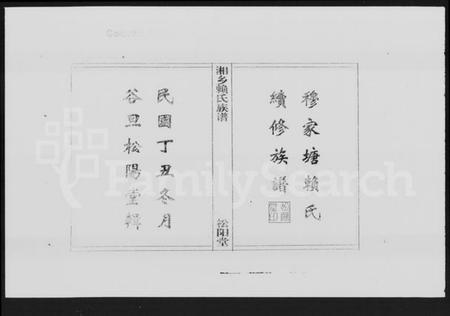 穆家塘賴氏
續修族譜
湘乡赖氏族谱
松阳堂
民國丁丑冬月
谷旦松陽堂輯
FamilySearch